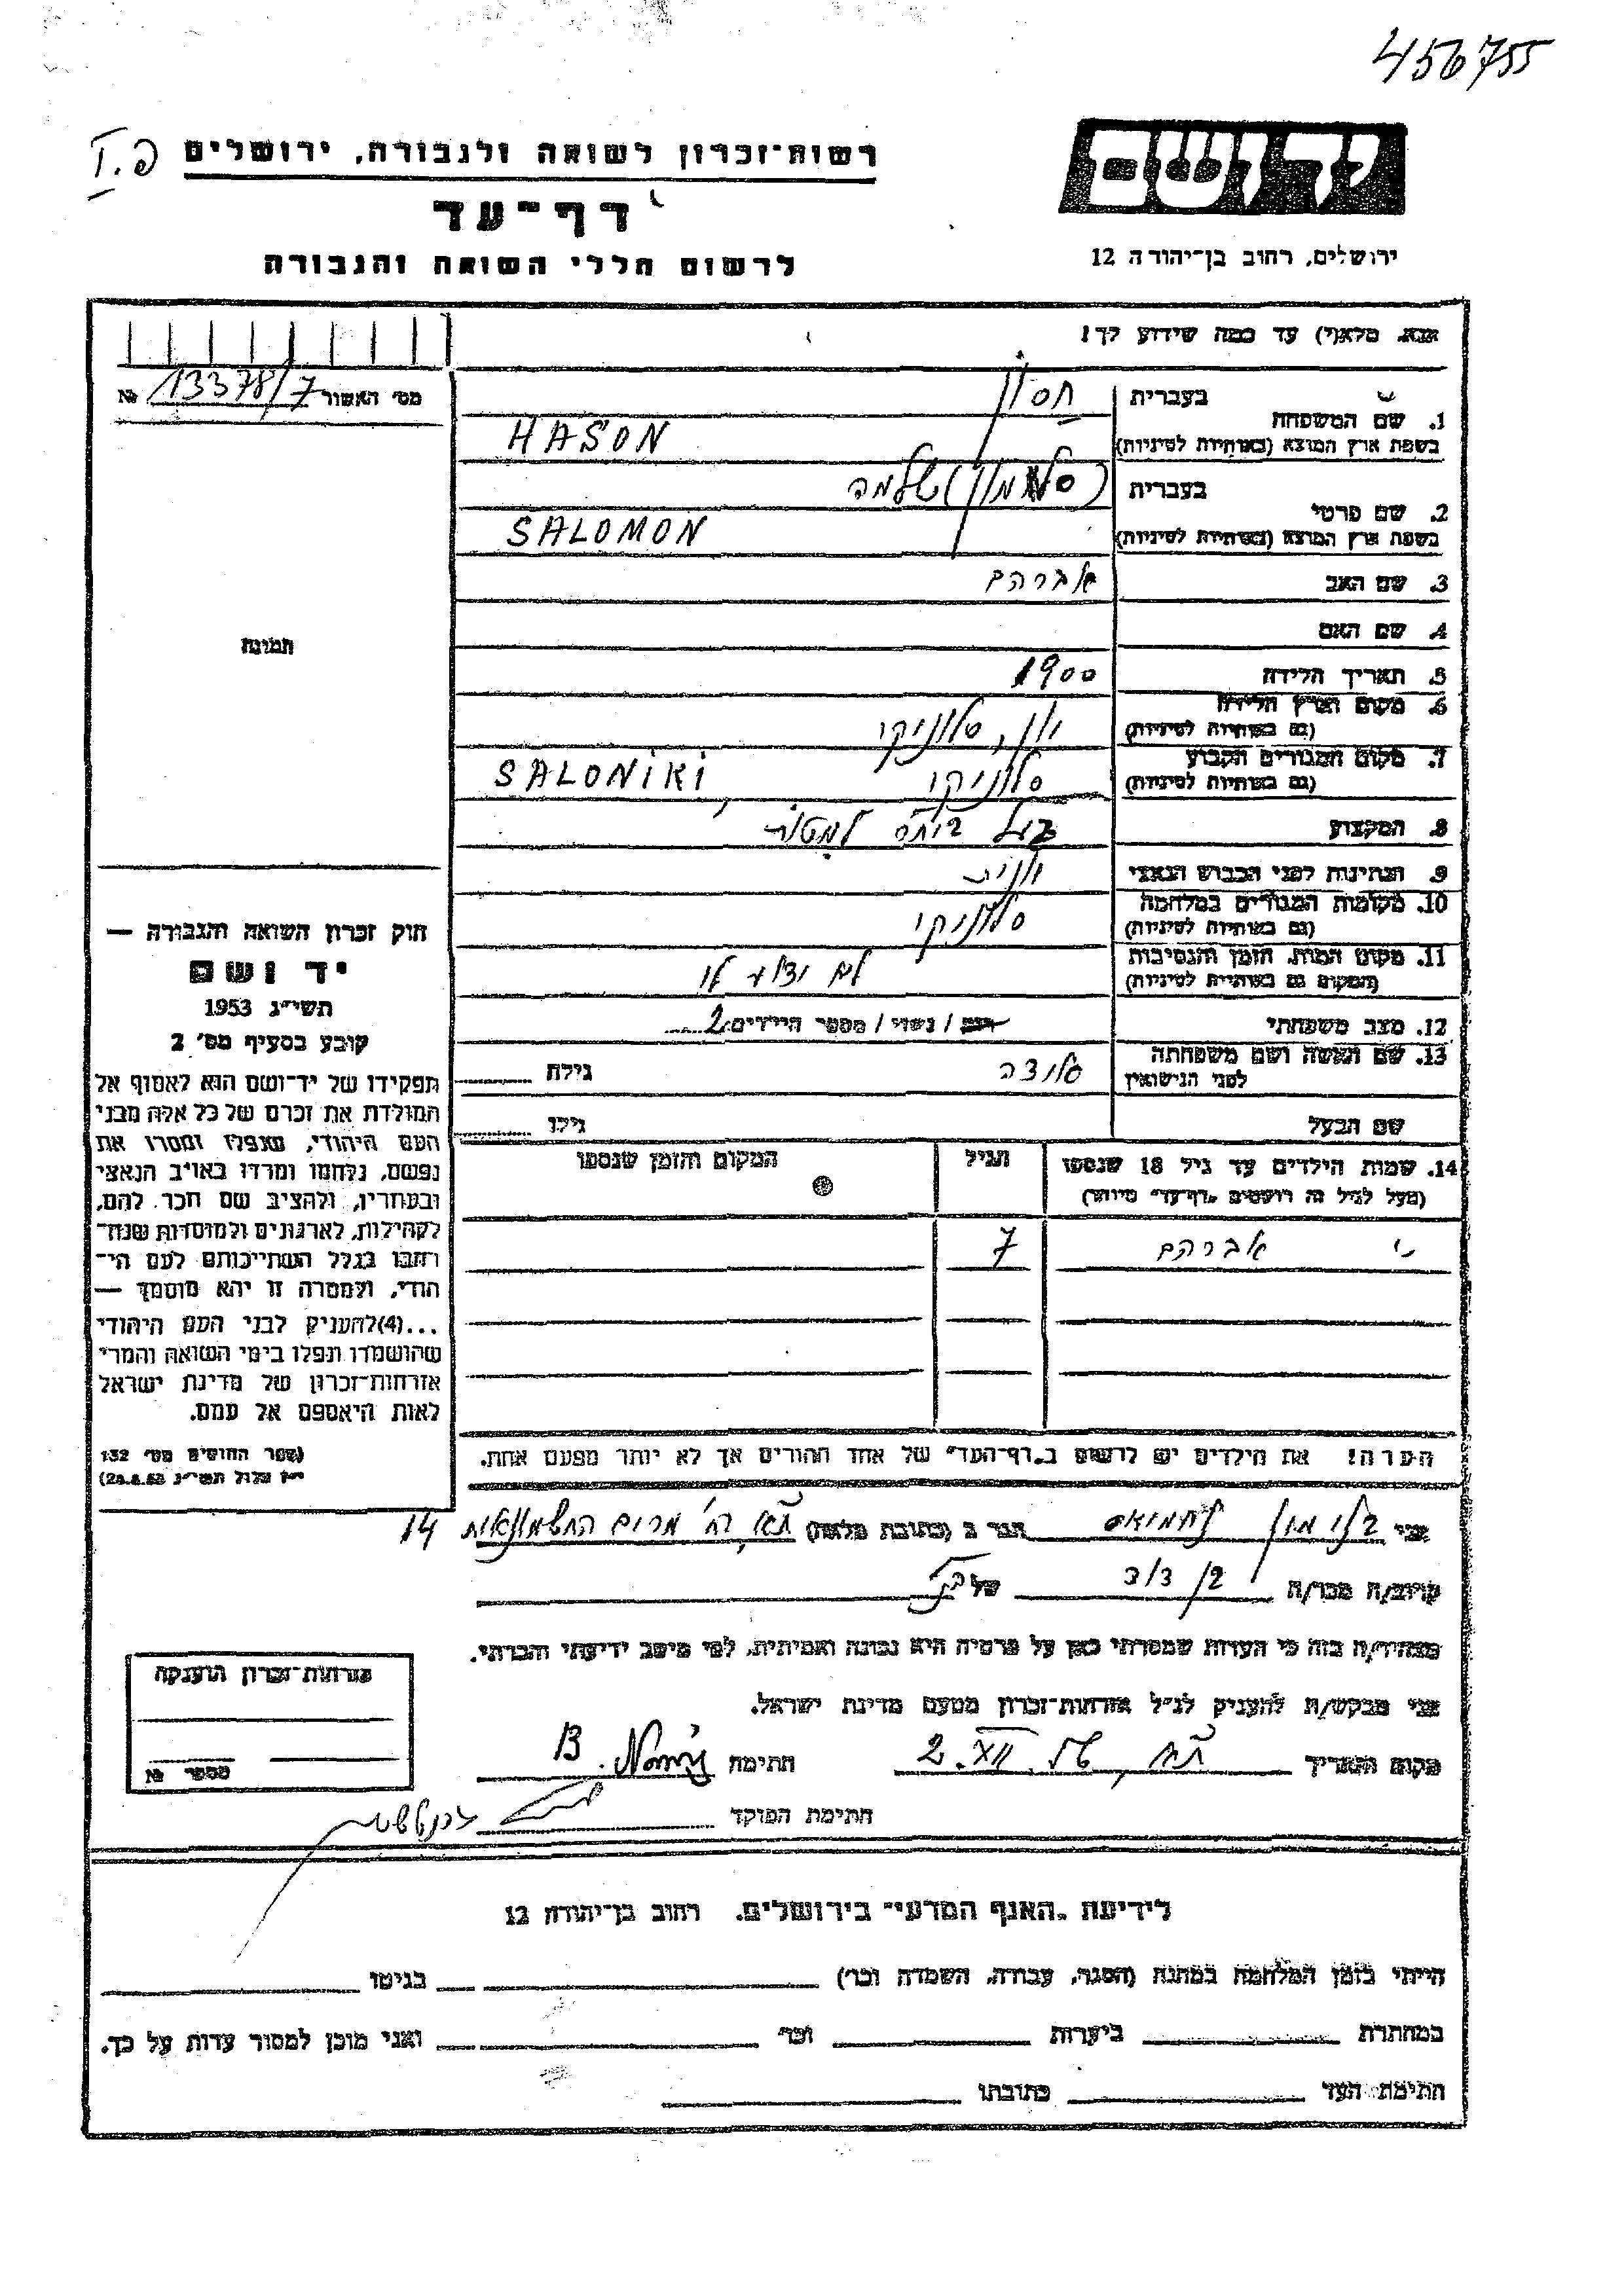 456755
יד ושם
ירושלים, רחוב בן־יהודה 12
רשות־זכרון לשואה ולגבורה, ירושלים
דף־עד
לרשום חללי השואה והגבורה
אנא, מלא(י) עד כמה שידוע לך!
מס׳ האשור 13378/7 №
תמונה
1. שם המשפחה
בעברית חסון
בשפת ארץ המוצא (באותיות לטיניות) HASON
2. שם פרטי
בעברית (סלומון) שלמה
בשפת ארץ המוצא (באותיות לטיניות) SALOMON
3. שם האב אברהם
4. שם האם
5. תאריך הלידה 1900
6. מקום וארץ הלידה יוון, סלוניקי
(גם באותיות לטיניות)
7. מקום המגורים הקבוע סלוניקי SALONIKI
(גם באותיות לטיניות)
8. המקצוע בעל ביח״ס
9. הנתינות לפני הכבוש הנאצי יוונית
10. מקומות המגורים במלחמה סלוניקי
(גם באותיות לטיניות)
11. מקום המות, הזמן והנסיבות לא ידוע לי
(המקום גם באותיות לטיניות)
12. מצב משפחתי רווק / נשוי / מספר הילדים 2
13. שם האשה ושם משפחתה
לפני הנישואין גילה
שם הבעל גילו
14. שמות הילדים עד גיל 18 שנספו הגיל המקום והזמן שנספו
(מעל לגיל זה רושמים „דף־עד״ מיוחד)
אברהם 7
הערה! את הילדים יש לרשום ב„דף־העד״ של אחד ההורים אך לא יותר מפעם אחת.
חוק זכרון השואה והגבורה —
יד ושם
תשי״ג 1953
קובע בסעיף מס׳ 2
תפקידו של יד־ושם הוא לאסוף אל
המולדת את זכרם של כל אלה מבני
העם היהודי, שנפלו ומסרו את
נפשם, נלחמו ומרדו באויב הנאצי
ובעוזריו, ולהציב שם וזכר להם,
לקהילות, לארגונים ולמוסדות שנח־
רבו בגלל השתייכותם לעם היה־
הודי, ולמטרה זו יהא מוסמך —
...(4)להעניק לבני העם היהודי
שהושמדו ונפלו בימי השואה והמרי
אזרחות־זכרון של מדינת ישראל
לאות היאספם אל עמם.
(ספר החוקים מס׳ 132
י״ז אלול תשי״ג 28.8.53)
אני הגר ב (כתובת מלאה) ת״א, רח׳ החשמונאים 14
קרוב/ה מכר/ה של
מצהיר/ה בזה כי העדות שמסרתי כאן על פרטיה היא נכונה ואמיתית, לפי מיטב ידיעתי והכרתי.
אני מבקש/ת להעניק לנ״ל אזרחות־זכרון מטעם מדינת ישראל.
מקום ותאריך ת״א, 2. XII חתימה
חתימת הפוקד
אזרחות־זכרון הוענקה
מספר №
לידיעת „האגף המדעי״ בירושלים, רחוב בן־יהודה 12
הייתי בזמן המלחמה במחנה (הסגר, עבודה, השמדה וכו׳) בגיטו
במחתרת ביערות וכו׳ ואני מוכן למסור עדות על כך.
חתימת העד כתובתו